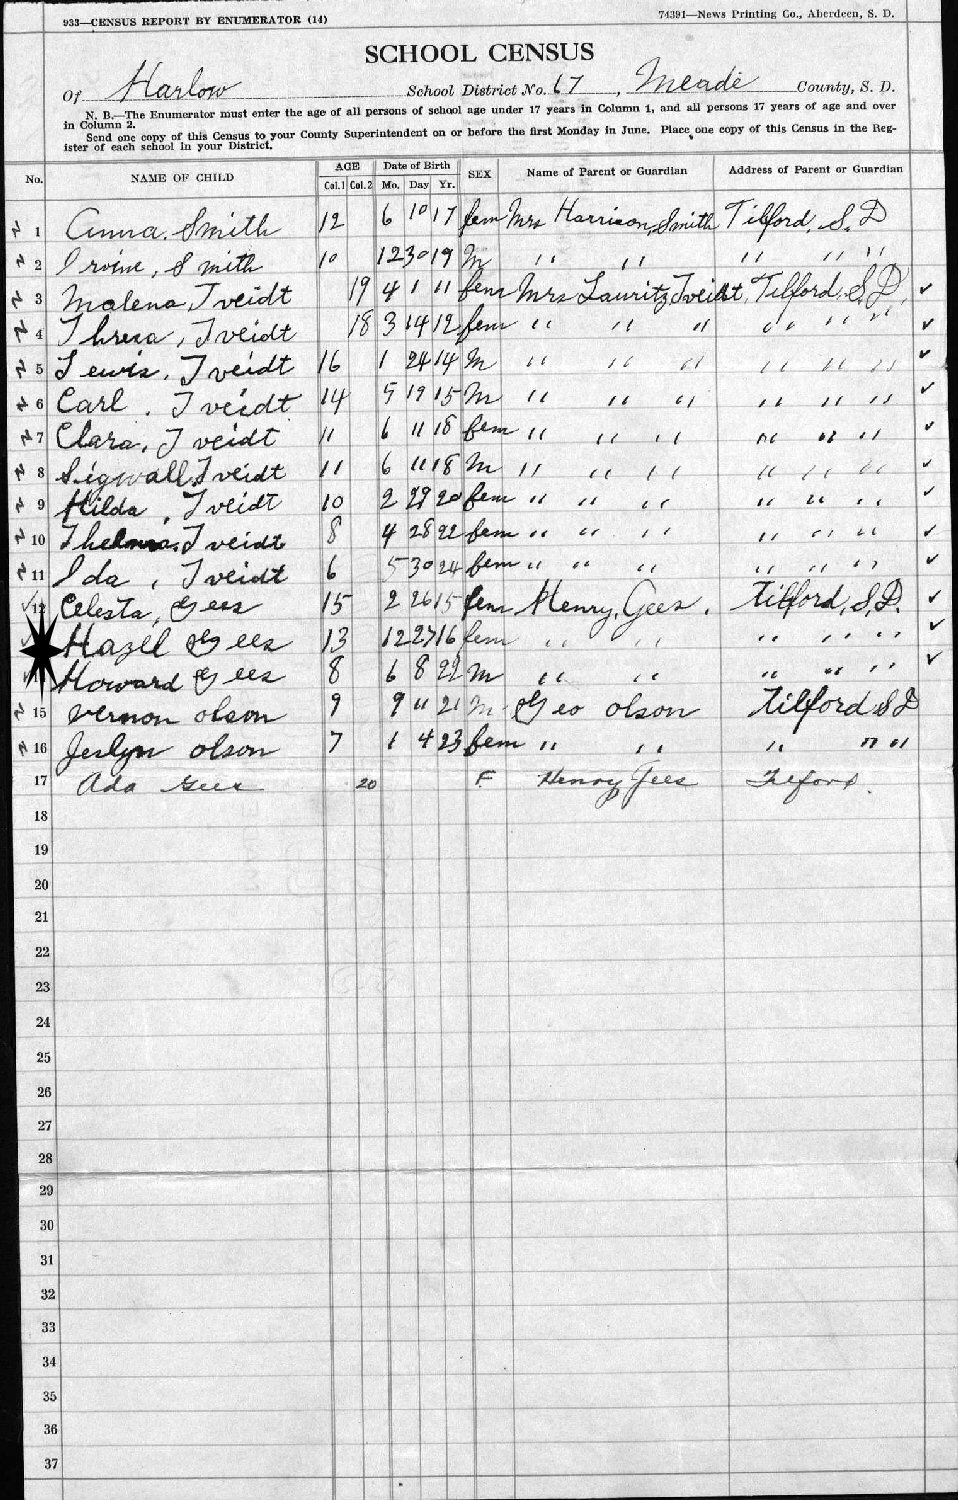 933—CENSUS REPORT BY ENUMERATOR (14) 74391—News Printing Co., Aberdeen, S. D.
SCHOOL CENSUS
Of Harlow School District No. 67, Meade County, S. D.
N. B.—The Enumerator must enter the age of all persons of school age under 17 years in Column 1, and all persons 17 years of age and over
in Column 2.
Send one copy of this Census to your County Superintendent on or before the first Monday in June. Place one copy of this Census in the Reg-
ister of each school in your District.
No. NAME OF CHILD AGE Col. 1 Col. 2 Date of Birth Mo. Day Yr. SEX Name of Parent or Guardian Address of Parent or Guardian
1 Anna. Smith 12 6 10 17 fem Mrs Harrison, Smith Tilford, S.D
2 Irvine, Smith 10 12 30 19 M " " " " "
3 Malena, Tveidt 19 4 1 11 fem Mrs Lauritz, Tveidt, Tilford, S.D. ✓
4 Thresa, Tveidt 18 3 14 12 fem " " " " " " " ✓
5 Lewis, Tveidt 16 1 24 14 M " " " " " " " ✓
6 Carl. Tveidt 14 5 19 15 M " " " " " " ✓
7 Clara, Tveidt 11 6 11 18 fem " " " " " " ✓
8 Sigwall Tveidt 11 6 11 18 M " " " " " " ✓
9 Hilda, Tveidt 10 2 29 20 fem " " " " " " ✓
10 Thelma, Tveidt 8 4 28 22 fem " " " " " " ✓
11 Ida, Tveidt 6 5 30 24 fem " " " " " " " ✓
12 Celesta, Gees 15 2 26 15 fem Henry, Gees. Tilford, S.D. ✓
Hazel Gees 13 12 27 16 fem " " " " " " ✓
Howard Gees 8 6 8 22 M " " " " " " ✓
15 Vernon olson 9 9 11 21 M Geo olson Tilford S D
16 Jeslyn olson 7 1 4 23 fem " " " " "
17 Ada Gees 20 F Henry Gees Tilford.
18
19
20
21
22
23
24
25
26
27
28
29
30
31
32
33
34
35
36
37